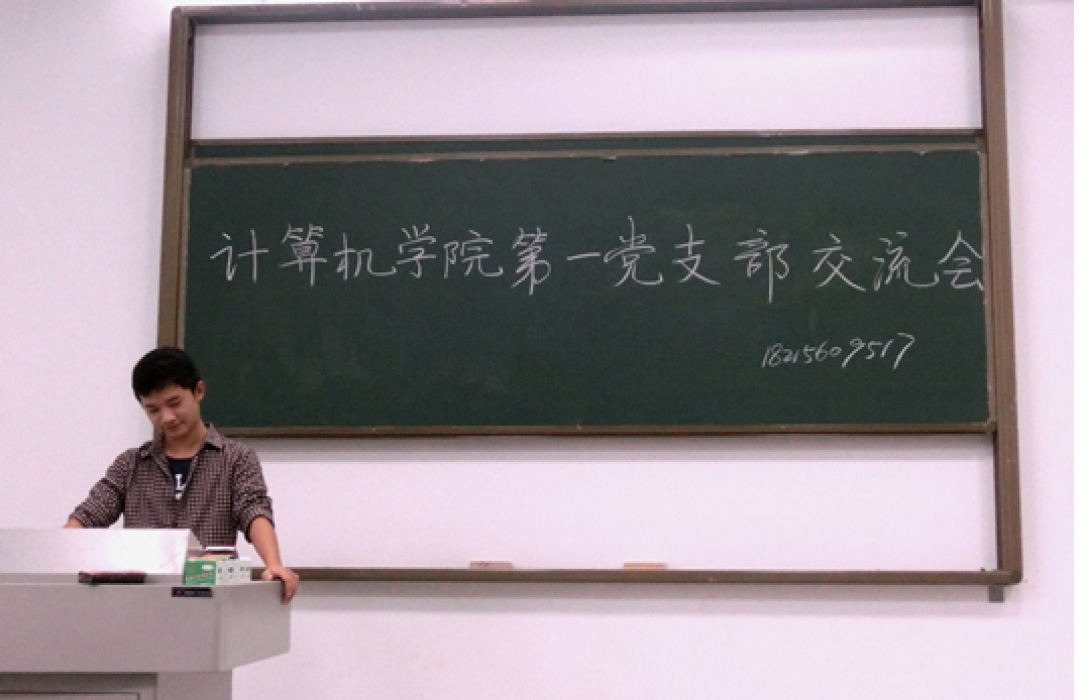 计算机学院第一党支部交流会
18215609517